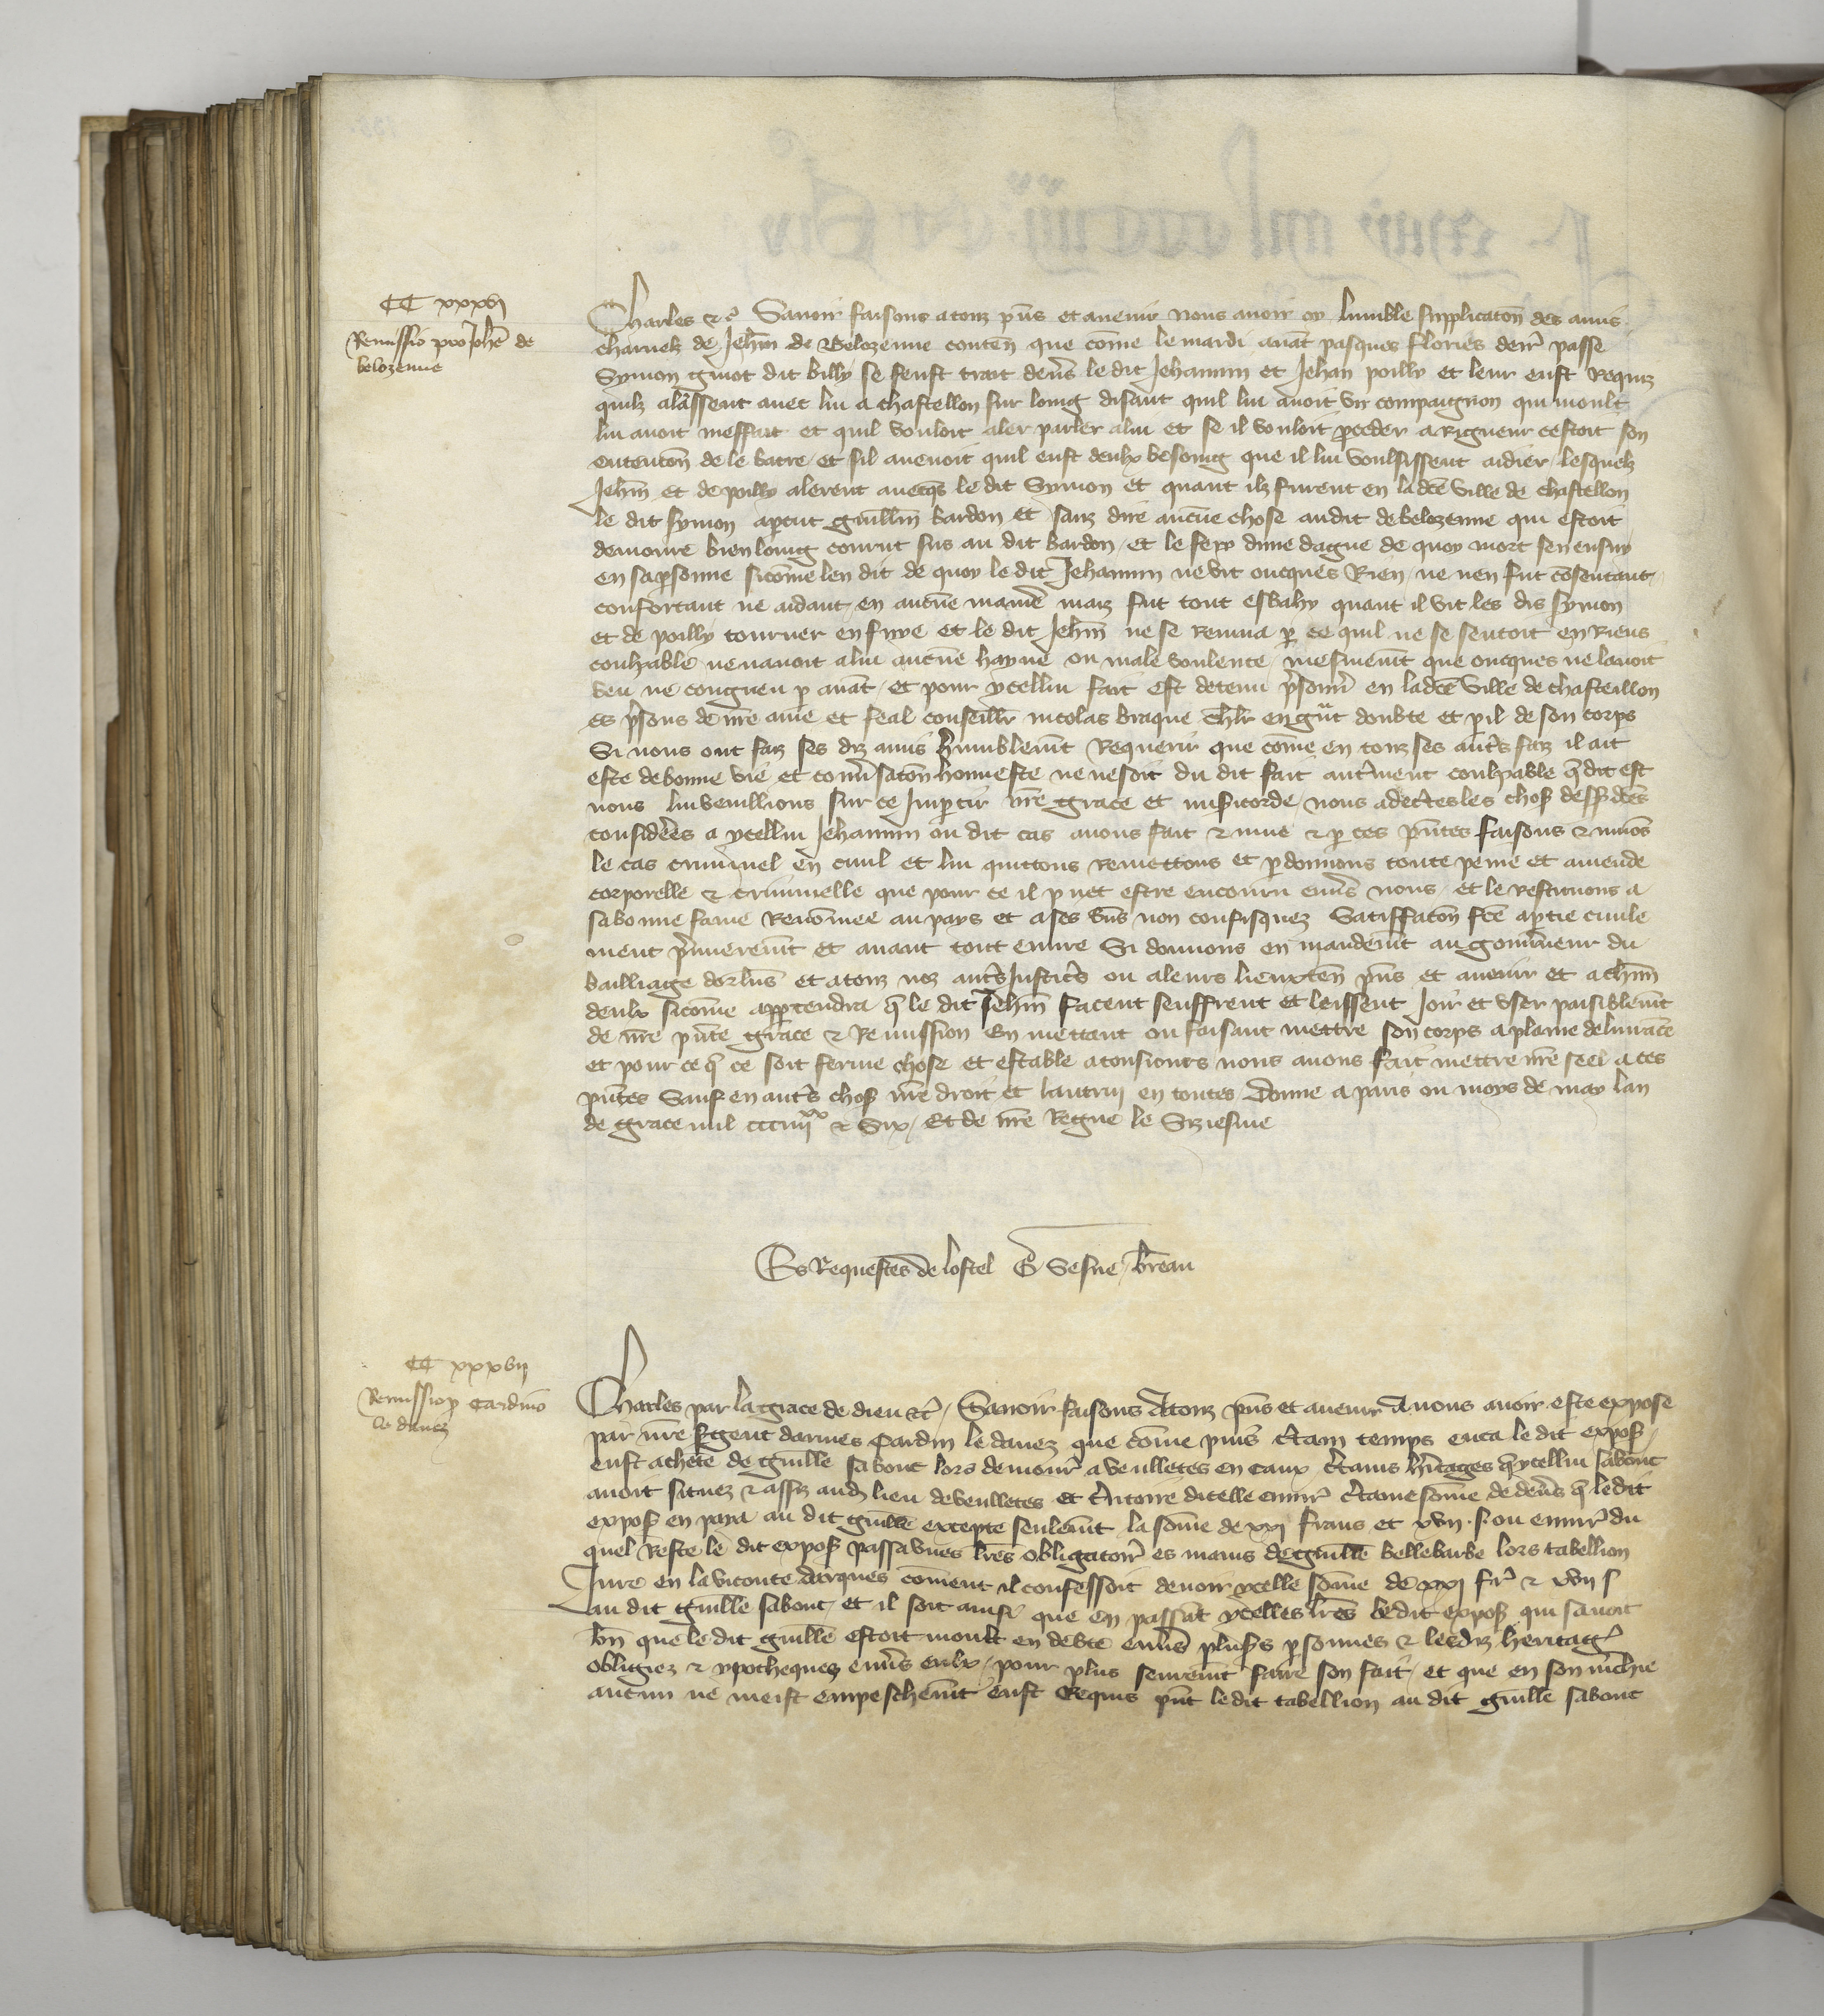 CC xxxvj
Remissio pro Johe de
belozenne
Charles &c Sauoir faisons a touz pns et auenir nous auoir oy lumble supplicaton des amis
charnelz de Jehin de Belozenne conten que come le mardi auat pasques flories derr passe
Symon guiot dit billy se feust trait deus le dit Jehannin et Jehan poilly et leur eust Requiz
quilz alassent auec lui a chastellon sur loing disant quil lui auoit un compaignon qui moult
lui auoit meffait et quil vouloit aler parler a lui et se il vouloit pceder a Rigueur cestoit son
ententon de le batre / et sil auenoit quil eust deulx besoing que il lui voulsissent aidier / lesquelz
Jehin et de poilly alerent auecqs le dit Symon et quant ilz furent en la dce ville de chastellon
le dit symon apcut guillm bardon et sanz dire aucune chose audit de belozenne qui estoit
demoure bien loing courut sus au dit bardon / et le fery dune dague de quoy mort sen ensuy
en sa psonne sicome len dit de quoy le dit Jehannin ne vit oncques Rien / ne nen fut csentant
confortant ne aidant en aucune maniere maiz fut tout esbahy quant il vit les dis symon
et de poilly tourner en fuye et le dit Jehin ne se remua p ce quil ne se sentoit en Riens
coulpable ne nauoit a lui aucune hayne ou male voulente / mesmemt que oncques ne lauoit
veu ne congneu p auat / et pour ycellui fait est detenu prisonn en ladce ville de chasteillon
es prisons de nre ame et feal conseillr nicolas braque chlr en grat doubte et pil de son corps
Si nous ont faiz ses diz amis humblemt Requerir que come en touz ses autrs faiz il ait
este de bonne vie et conusaton honneste ne ne soit du dit fait autrment coulpable q dit est
nous lui veuillions sur ce Impartir nre grace et misicorde / nous adcertes les chos dessus dces
considerees a ycellui Jehannin ou dit cas auons fait & mue & p ces pntes faisons & muos
le cas criminel en ciuil et lui quittons remettons et pdonnons toute peine et amende
corporelle & criminelle que pour ce il puet estre encouru enuers nous / et le restituons a
sa bonne fame Renomee au pays et a ses biens non confisquez Satiffaton fce a ptie ciuile
ment primieremt et auant tout euure Si donnons en mandemt au gouuneur du
bailliage dorliens et a touz noz autrs Justicrs ou a leurs lieuxten pns et auenir et a chun
deulx sicome appartendra q le dit Jehin facent seuffrent et leissent Joir et vser paisiblemt
de nre pnte grace & Remission En mettant ou faisant mettre son corps a plaine deliurace
et pour ce q ce soit ferme chose et estable a tousiours nous auons fait mettre nre seel a ces
pntes Sauf en autrs chos nre droit et lautruy en toutes Donne a paris ou moys de may lan
de grace mil ccciiijxx & Six / Et de nre Regne le Siziesme
Es Requestes de lostel vesne / breau
CC xxxvij
Remissio p Cardino
le danez
Charles par la grace de dieu &c / Sauoir faisons A touz pns et auenir A nous auoir este expose
par nre sgent darmes Cardin le danez que come puis ctain temps enca le dit expos
eust achete de guille sabout lors demourr a veulletes en caux ctains hritages q ycellui sabout
auoit situez & assiz aud lieu de veulletes et Critoire dicelle enuir ctaine some de deniers q ledit
expos en paia au dit guille excepte seulemt la some de xxj frans et xvij s ou enuir du
quel Reste le dit expos passa unes lres obligatoir es mains de guille bellebarbe lors tabellion
Jure en la viconte darques coment il confessoit deuoir ycelle some de xxj fr & xvij s
au dit guille sabout / et il soit ainsi que en passant ycelles lres ledit expos qui sauoit
bn que le dit guille estoit moult en debte enuers plusrs psonnes & lesdiz heritag
obligiez & ypothequez enuers eulx / pour plus seuremt faire son fait / et que en son mchie
aucun ne meist empeschemt eust Requis pnt ledit tabellion au dit guille sabout